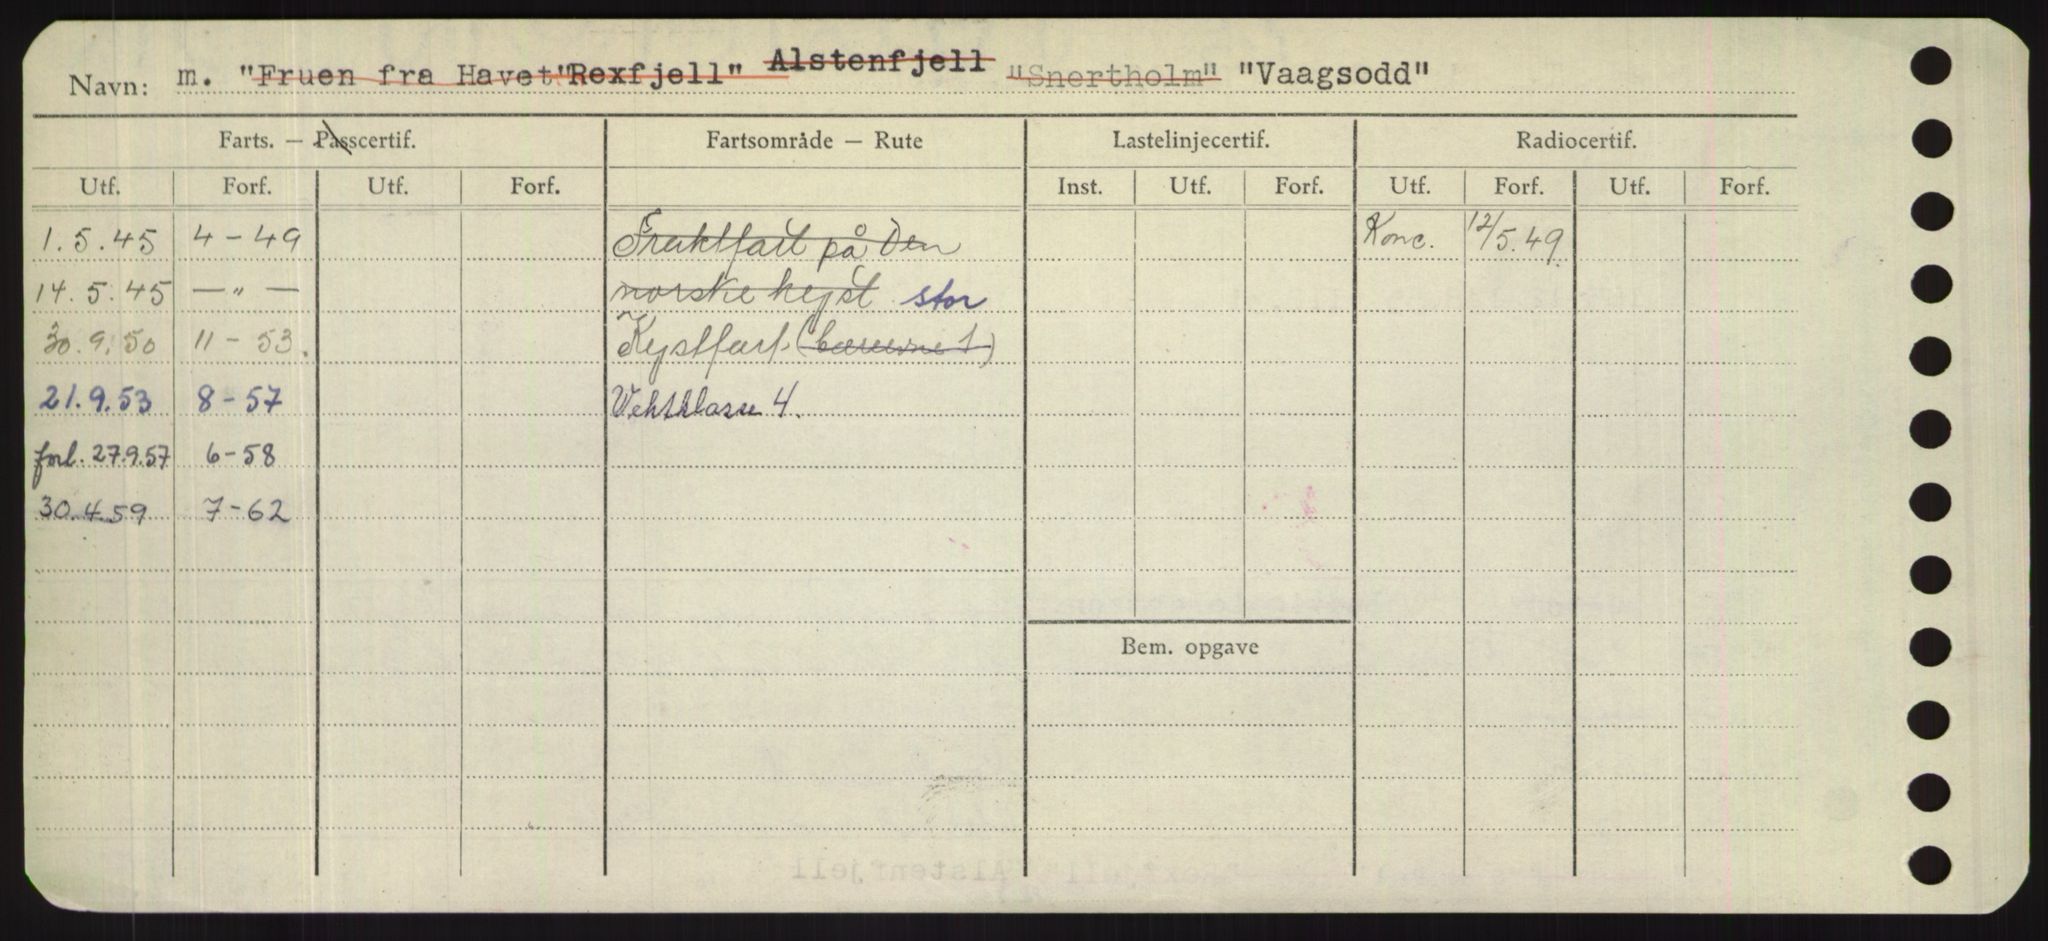 Navn: m. "Fruen fra Havet" "Rexfjell" Alstenfjell "Snertholm" "Vaagsodd"
Farts. — Passcertif. Fartsområde — Rute Lastelinjecertif. Radiocertif.
Utf. Forf. Utf. Forf. Inst. Utf. Forf. Utf. Forf. Utf. Forf.
1.5.45 4-49 Fraktfart på Den Konc. 12/5.49
14.5.45 — " — norske kyst stor
30.9.50 11-53. Kystfart
21.9.53 8-57 Vektklasse 4.
forl. 27.9.57 6-58
30.4.59 7-62
Bem. opgave